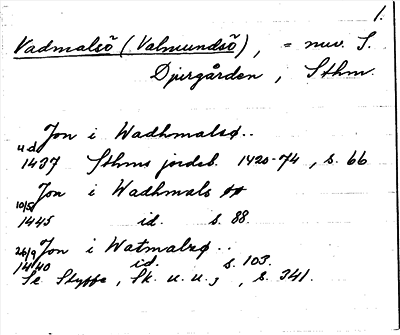 1.
Vadmalsö (Valmundsö), = nuv. S.
Djurgården, Sthm.
Jon i Wadhmalsø..
u d
1437 Sthms jordeb. 1420-74, s. 66
Jon i Wadhmals
10/5
1445 id. s. 88.
Jon i Watmalsø..
26/9
1440 id. s. 103.
Se Styffe, Sk. u. u., s. 341.